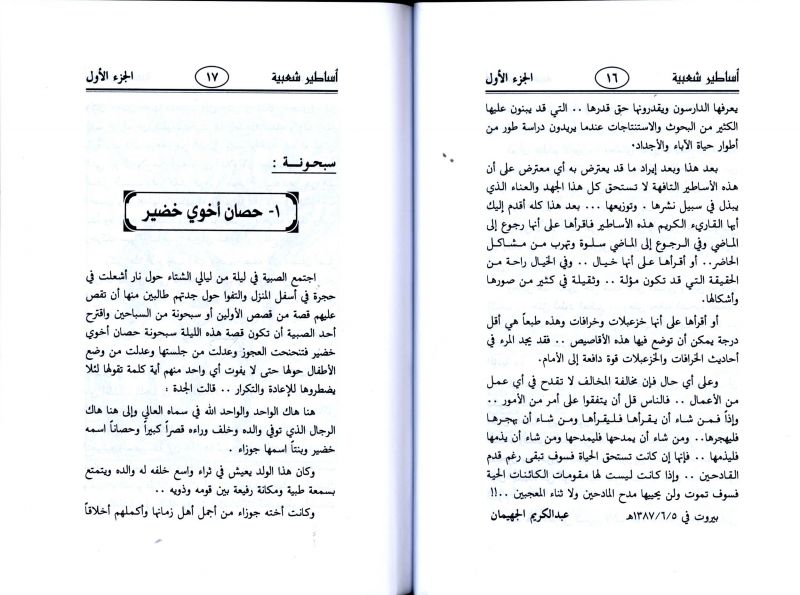 أساطير شعبية ١٦ الجزء الأول
يعرفها الدارسون ويقدرونها حق قدرها .. التي قد يبنون عليها
الكثير من البحوث والاستنتاجات عندما يريدون دراسة طور من
أطوار حياة الآباء والأجداد.
بعد هذا وبعد إيراد ما قد يعترض به أي معترض على أن
هذه الأساطير التافهة لا تستحق كل هذا الجهد والعناء الذي
يبذل في سبيل نشرها . وتوزيعها ... بعد هذا كله أقدم إليك
أيها القاريء الكريم هذه الأساطير فاقرأها على أنها رجوع إلى
الماضي وفي الرجوع إلى الماضي سلوة وتهرب من مشاكل
الحاضر.. أو أقرأها على أنها خيال .. وفي الخيال راحة من
الحقيقة التي قد تكون مؤلة .. وثقيلة في كثير من صورها
وأشكالها.
أو أقرأها على أنها خزعبلات وخرافات وهذه طبعاً هي أقل
درجة يمكن أن توضع فيها هذه الأقاصيص .. فقد يجد المرء في
أحاديث الخرافات والخزعبلات قوة دافعة إلى الأمام.
وعلى أي حال فإن مخالفة المخالف لا تقدح في أي عمل
من الأعمال .. فالناس قل أن يتفقوا على أمر من الأمور ..
وإذاً فمن شاء أن يقرأها فليقرأها ومن شاء أن يهجرها
فليهجرها.. ومن شاء أن يمدحها فليمدحها ومن شاء أن يذمها
فليذمها .. فإنها إن كانت تستحق الحياة فسوف تبقى رغم قدم
القادحين .. وإذا كانت ليست لها مقومات الكائنات الحية
فسوف تموت ولن يحييها مدح المادحين ولا ثناء المعجبين ..!!
بيروت في ١٣٨٧/٦/٥هـ عبدالكريم الجهيمان
أساطير شعبية ١٧ الجزء الأول
سبحونـــة :
١- حصان أخوي خضير
اجتمع الصبية في ليلة من ليالي الشتاء حول نار أشعلت في
حجرة في أسفل المنزل والتفوا حول جدتهم طالبين منها أن تقص
عليهم قصة من قصص الأولين أو سبحونة من السباحين واقترح
أحد الصبية أن تكون قصة هذه الليلة سبحونة حصان أخوي
خضير فتنحنحت العجوز وعدلت من جلستها وعدلت من وضع
الأطفال حولها حتى لا يفوت أي واحد منهم أية كلمة تقولها لئلا
يضطروها للإعادة والتكرار .. قالت الجدة :
هنا هاك الواحد والواحد الله في سماه العالي وإلى هنا هاك
الرجال الذي توفي والده وخلف وراءه قصراً كبيراً وحصاناً اسمه
خضير وبنتاً اسمها جوزاء .
وكان هذا الولد يعيش في ثراء واسع خلفه له والده ويتمتع
بسمعة طبية ومكانة رفيعة بين قومه وذويه ..
وكانت أخته جوزاء من أجمل أهل زمانها وأكملهم أخلاقاً